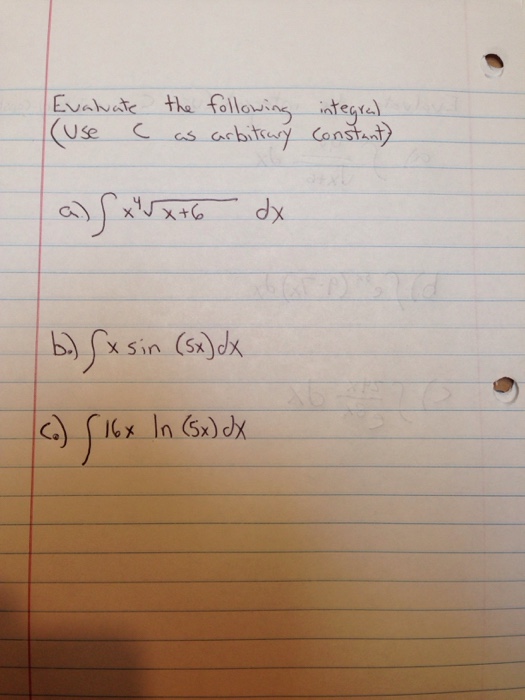 Evaluate the following integral
(Use C as arbitrary constant)
a) ∫ x⁴√x+6 dx
b.) ∫x sin (5x)dx
c.) ∫16x ln (5x)dx